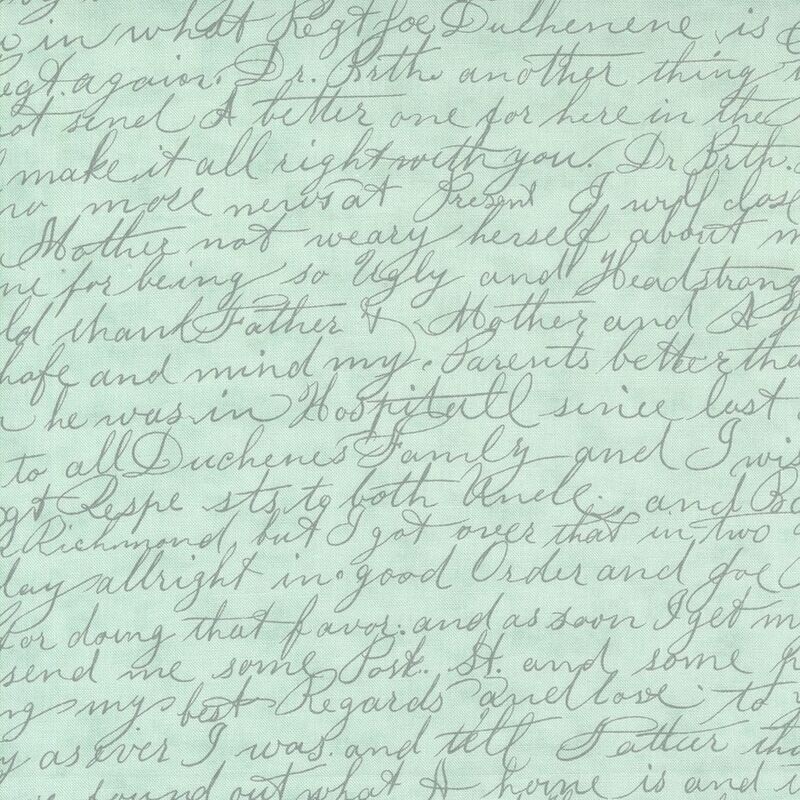 in what Regt Joe Duchenene is
egt. again. Dr. Brth. another thing
not send A better one for here in the
make it all right with you. Dr Brth.
no more news at Present I will clos
Mother not weary herself about m
me for being so Ugly and Headstrong
ld thank Father & Mother and A
hafe and mind my Parents better tha
he was in Hospitall since last
to all Duchenes Family and I wis
gt Respe sts to both Uncle. and
Richmond, but I got over that in two
lay allright in good Order and Joe
for doing that favor. and as soon I get m
send me some Post. St. and some p
ng my best Regards and love to
y as ever I was. and tell Father tha
found out what A home is and